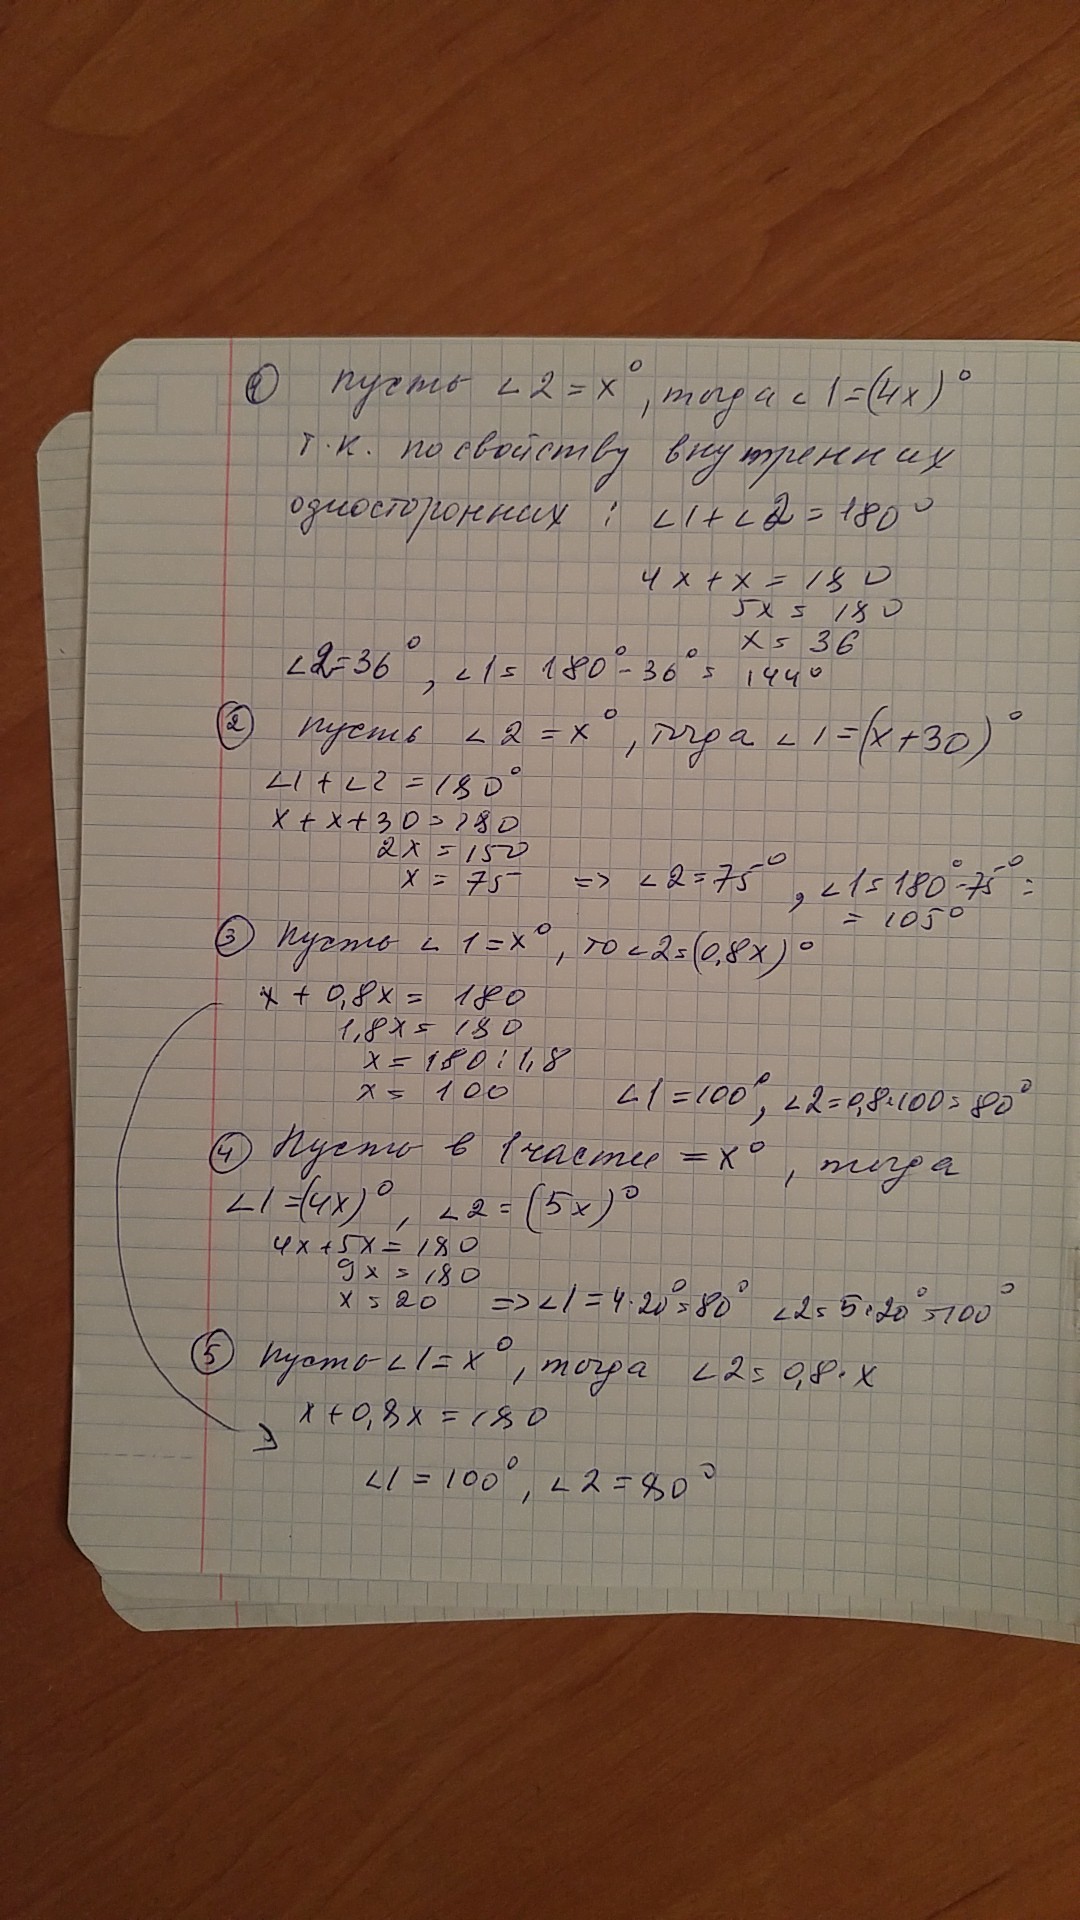 ① Пусть ∠2=x°, тогда ∠1=(4x)°
т.к. по свойству внутренних
односторонних : ∠1+∠2=180°
4x+x=180
5x=180
x=36
∠2=36°, ∠1=180°-36°=144°
② Пусть ∠2=x°, тогда ∠1=(x+30)°
∠1+∠2=180°
x+x+30=180
2x=150
x=75 => ∠2=75°, ∠1=180°-75°=
=105°
③ Пусть ∠1=x°, то ∠2=(0,8x)°
x+0,8x=180
1,8x=180
x=180:1,8
x=100 ∠1=100°, ∠2=0,8·100=80°
④ Пусть в 1 части =x°, тогда
∠1=(4x)°, ∠2=(5x)°
4x+5x=180
9x=180
x=20 =>∠1=4·20°=80° ∠2=5·20°=100°
⑤ Пусть ∠1=x°, тогда ∠2=0,8·x
x+0,8x=180
∠1=100°, ∠2=80°